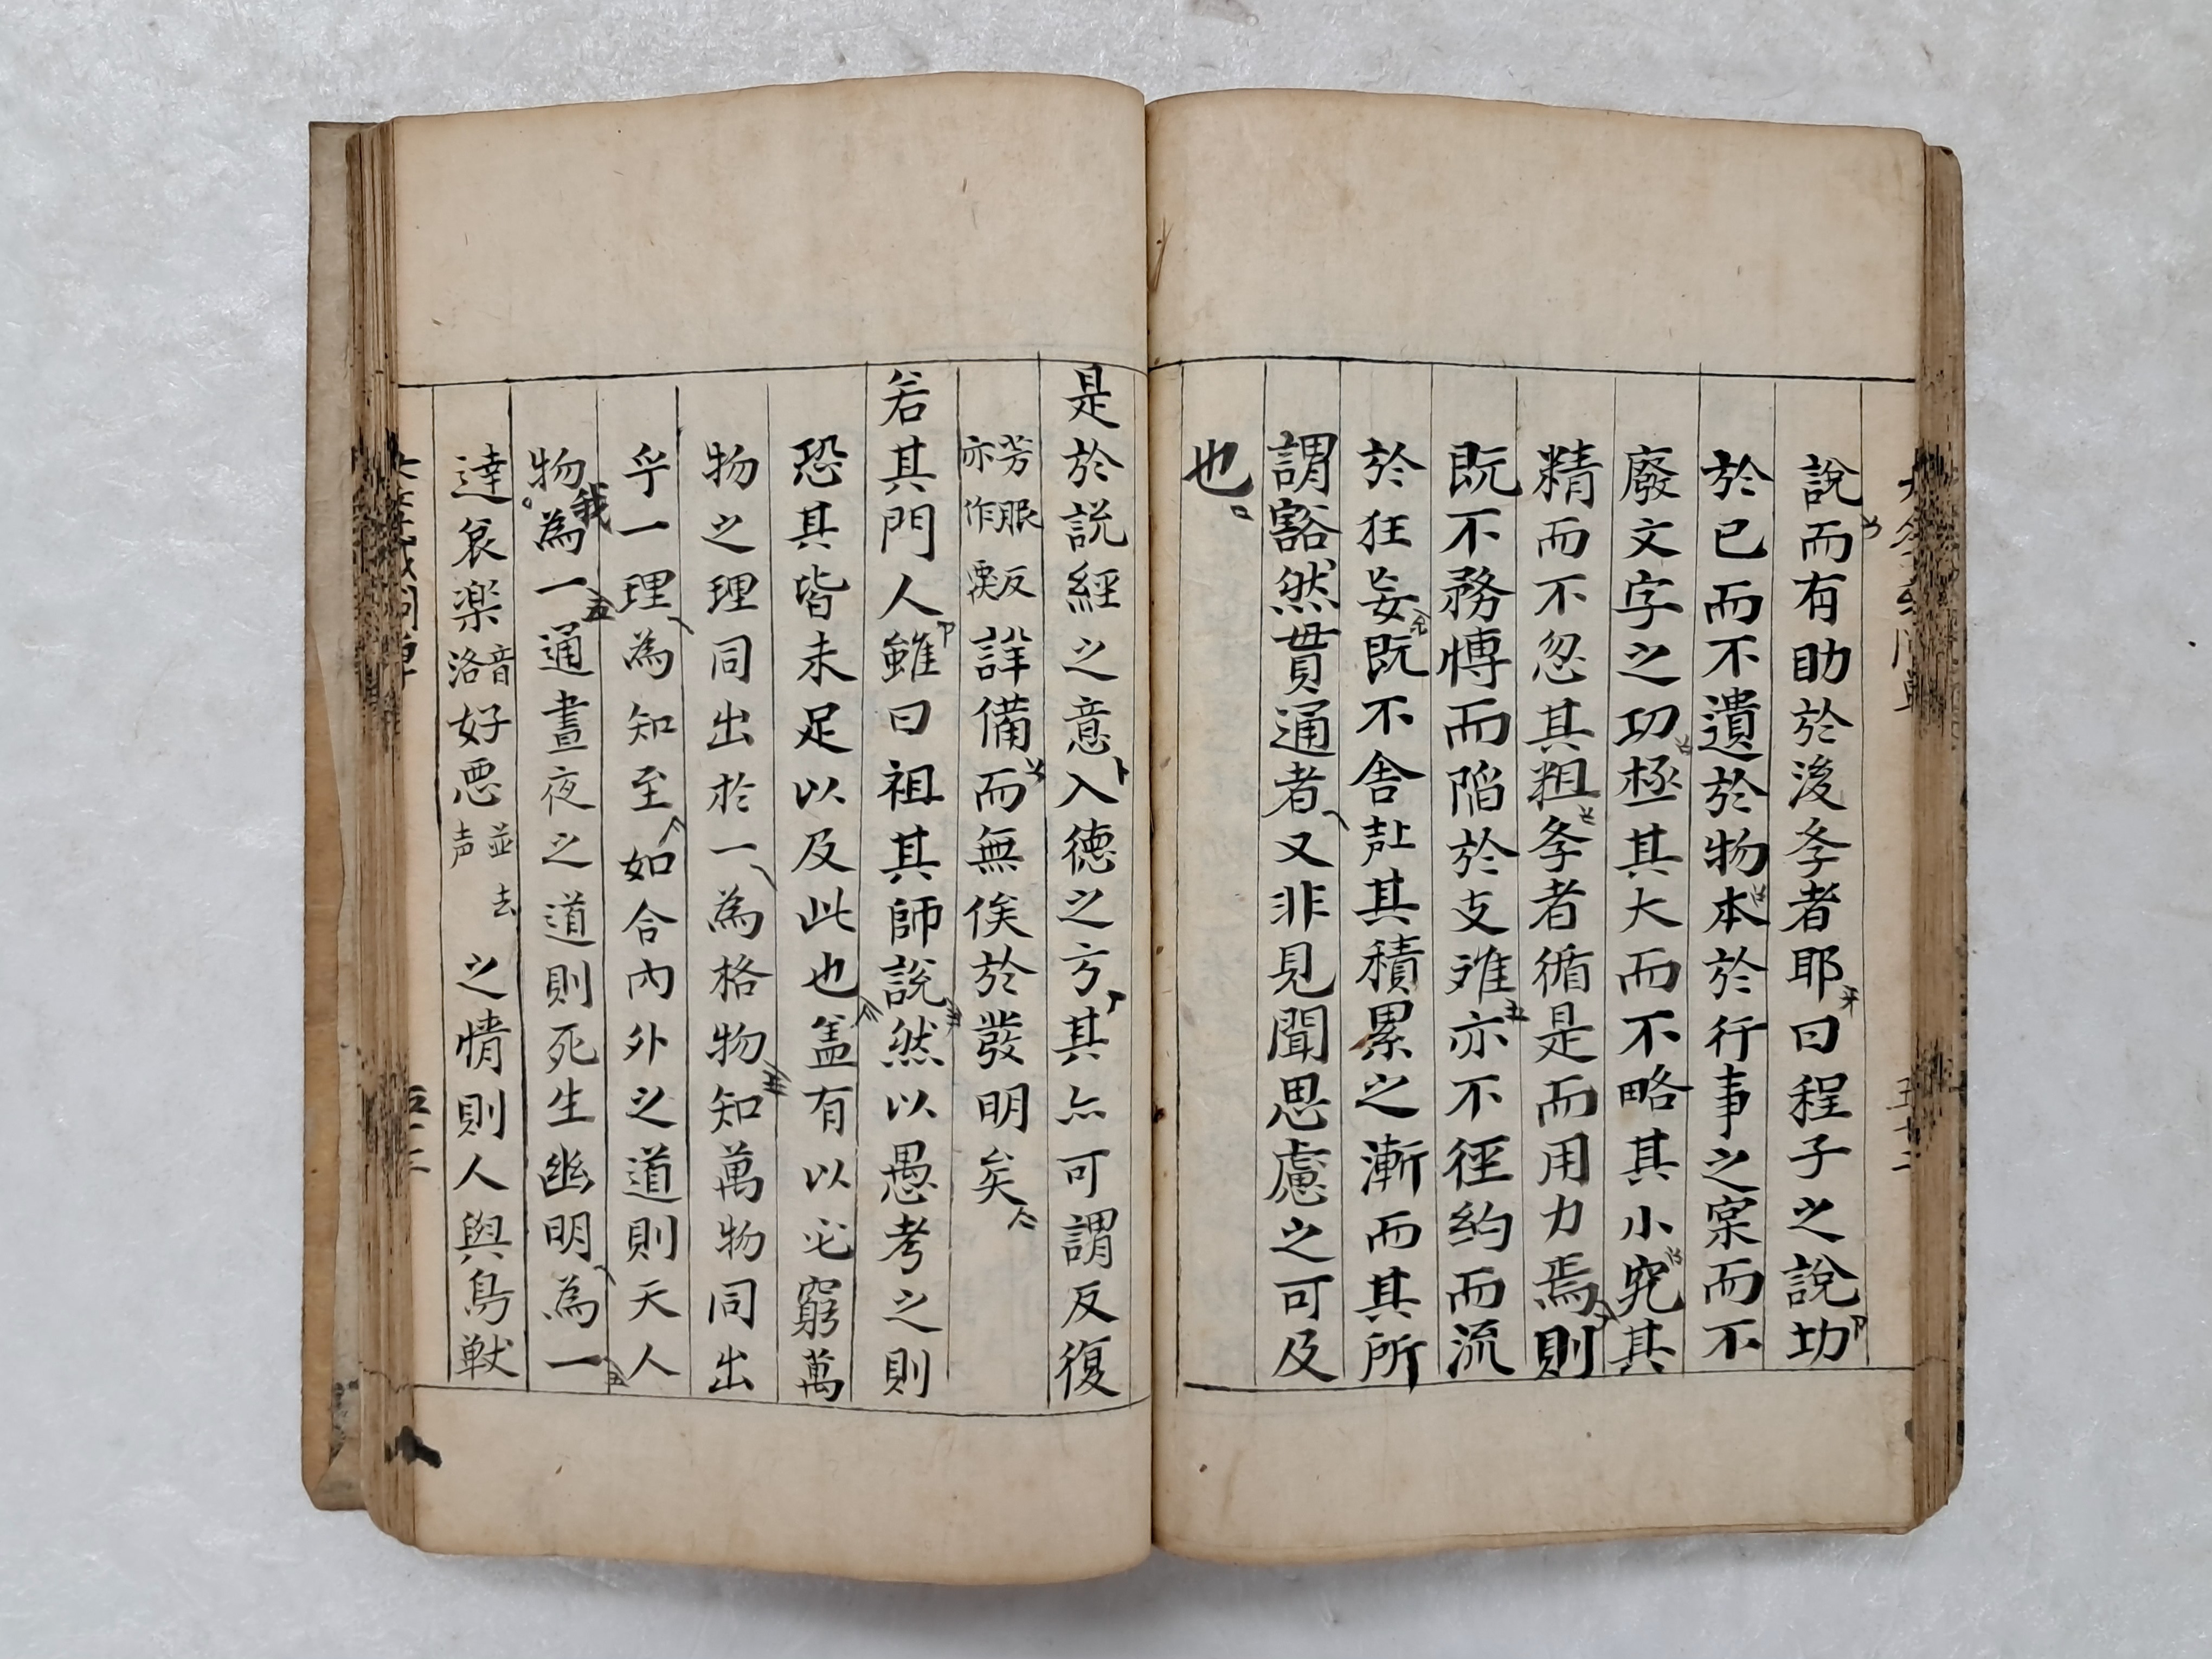 說而有助於後斈者耶曰程子之說功
於已而不遺於物本於行事之宲而不
廢文字之功極其大而不略其小究其
精而不忽其粗斈者循是而用力焉則
既不務博而陷於支难亦不徑約而流
於狂妄既不舍其積累之漸而其所
謂豁然貫通者又非見聞思慮之可及
也
是於説經之意入德之方其亦可謂反復
芳服反
亦作覆
詳備而無俟於發明矣
若其門人雖曰祖其師說然以愚考之則
恐其皆未足以及此也盖有以必窮萬
物之理同出於一為格物知萬物同出
乎一理為知至如合內外之道則天人
物我為一通晝夜之道則死生幽明為一
達哀楽
音
洛
好悪
並去
声
之情則人與鳥獣